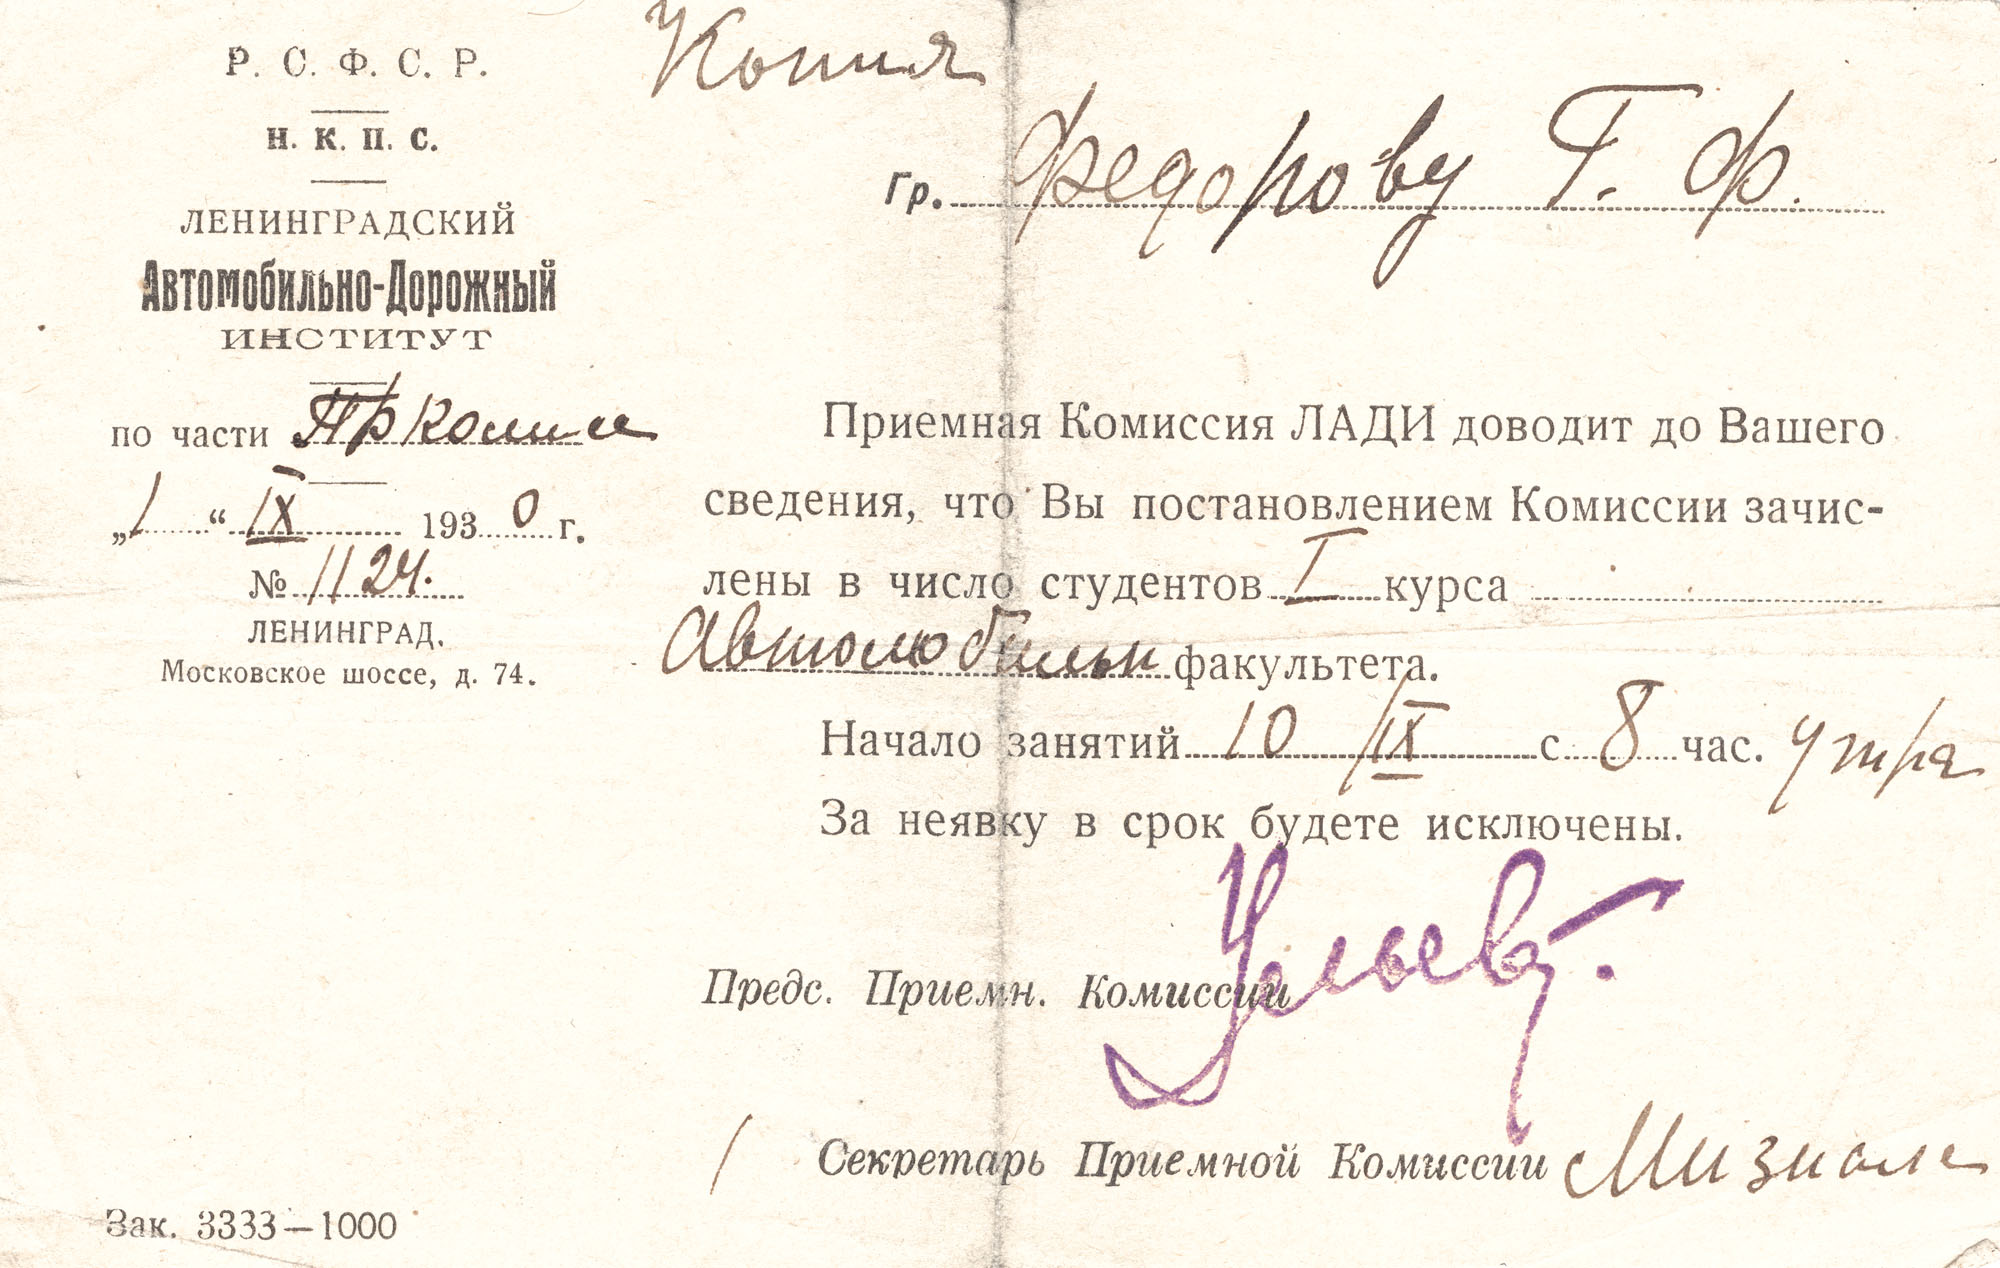 Копия
Р. С. Ф. С. Р.
Н. К. П. С.
ЛЕНИНГРАДСКИЙ
Автомобильно-Дорожный
ИНСТИТУТ
по части
„1“ IX 1930 г.
№ 1124.
ЛЕНИНГРАД.
Московское шоссе, д. 74.
Гр. Федорову Г. Ф.
Приемная Комиссия ЛАДИ доводит до Вашего
сведения, что Вы постановлением Комиссии зачис-
лены в число студентов I курса
Автомобильн факультета.
Начало занятий 10/IX с 8 час. утра
За неявку в срок будете исключены.
Предс. Приемн. Комиссии
Секретарь Приемной Комиссии
Зак. 3333—1000